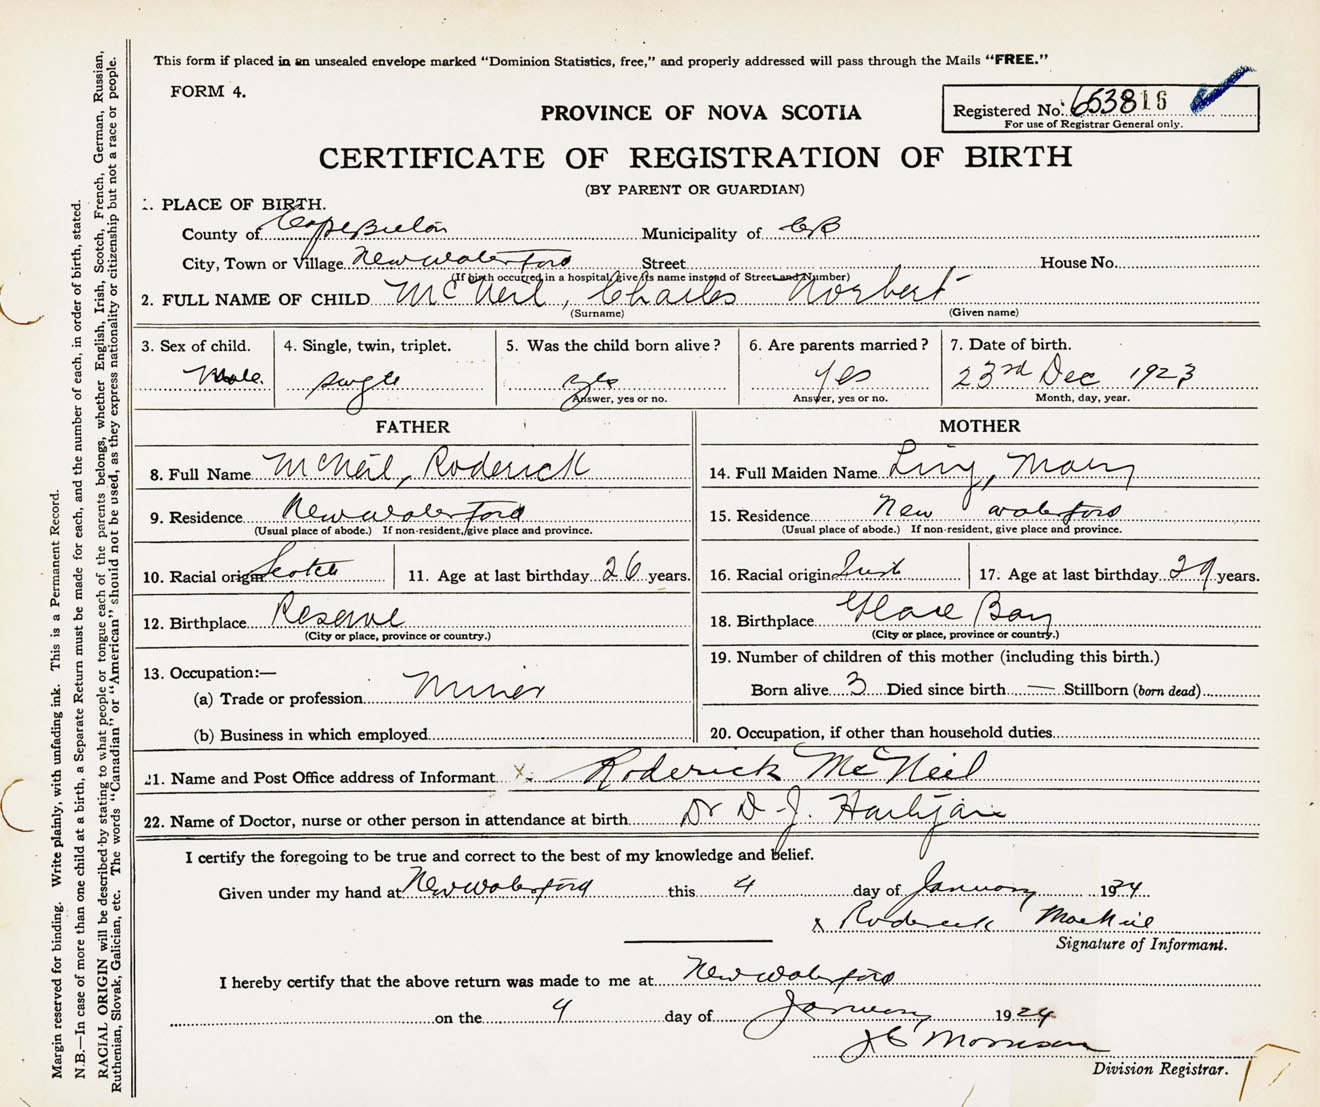 This form if placed in an unsealed envelope marked “Dominion Statistics, free,” and properly addressed will pass through the Mails “FREE.”
FORM 4.
PROVINCE OF NOVA SCOTIA
Registered No. 653816
For use of Registrar General only.
CERTIFICATE OF REGISTRATION OF BIRTH
(BY PARENT OR GUARDIAN)
1. PLACE OF BIRTH.
County of Cape Breton Municipality of CB
City, Town or Village New Waterford Street House No.
(If birth occurred in a hospital, give its name instead of Street and Number)
2. FULL NAME OF CHILD McNeil, Charles Norbert
(Surname) (Given name)
3. Sex of child. 4. Single, twin, triplet. 5. Was the child born alive? 6. Are parents married? 7. Date of birth.
Male. single yes yes 23rd Dec 1923
Answer, yes or no. Answer, yes or no. Month, day, year.
FATHER MOTHER
8. Full Name McNeil, Roderick 14. Full Maiden Name Mary
9. Residence New Waterford 15. Residence New Waterford
(Usual place of abode.) If non-resident, give place and province. (Usual place of abode.) If non-resident, give place and province.
10. Racial origin Scotch 11. Age at last birthday 26 years. 16. Racial origin 17. Age at last birthday years.
12. Birthplace Reserve 18. Birthplace Glace Bay
(City or place, province or country.) (City or place, province or country.)
13. Occupation:— 19. Number of children of this mother (including this birth.)
(a) Trade or profession Miner Born alive 3 Died since birth — Stillborn (born dead)
(b) Business in which employed 20. Occupation, if other than household duties
21. Name and Post Office address of Informant x Roderick McNeil
22. Name of Doctor, nurse or other person in attendance at birth Dr D. J.
I certify the foregoing to be true and correct to the best of my knowledge and belief.
Given under my hand at New Waterford this 4 day of January 1924
x Roderick MacNeil
Signature of Informant.
I hereby certify that the above return was made to me at New Waterford
on the 4 day of January 1924
Morrison
Division Registrar.
Margin reserved for binding. Write plainly, with unfading ink. This is a Permanent Record.
N.B.—In case of more than one child at a birth, a Separate Return must be made for each, and the number of each, in order of birth, stated.
RACIAL ORIGIN will be described by stating to what people or tongue each of the parents belongs, whether English, Irish, Scotch, French, German, Russian,
Ruthenian, Slovak, Galician, etc. The words “Canadian” or “American” should not be used, as they express nationality or citizenship but not a race or people.